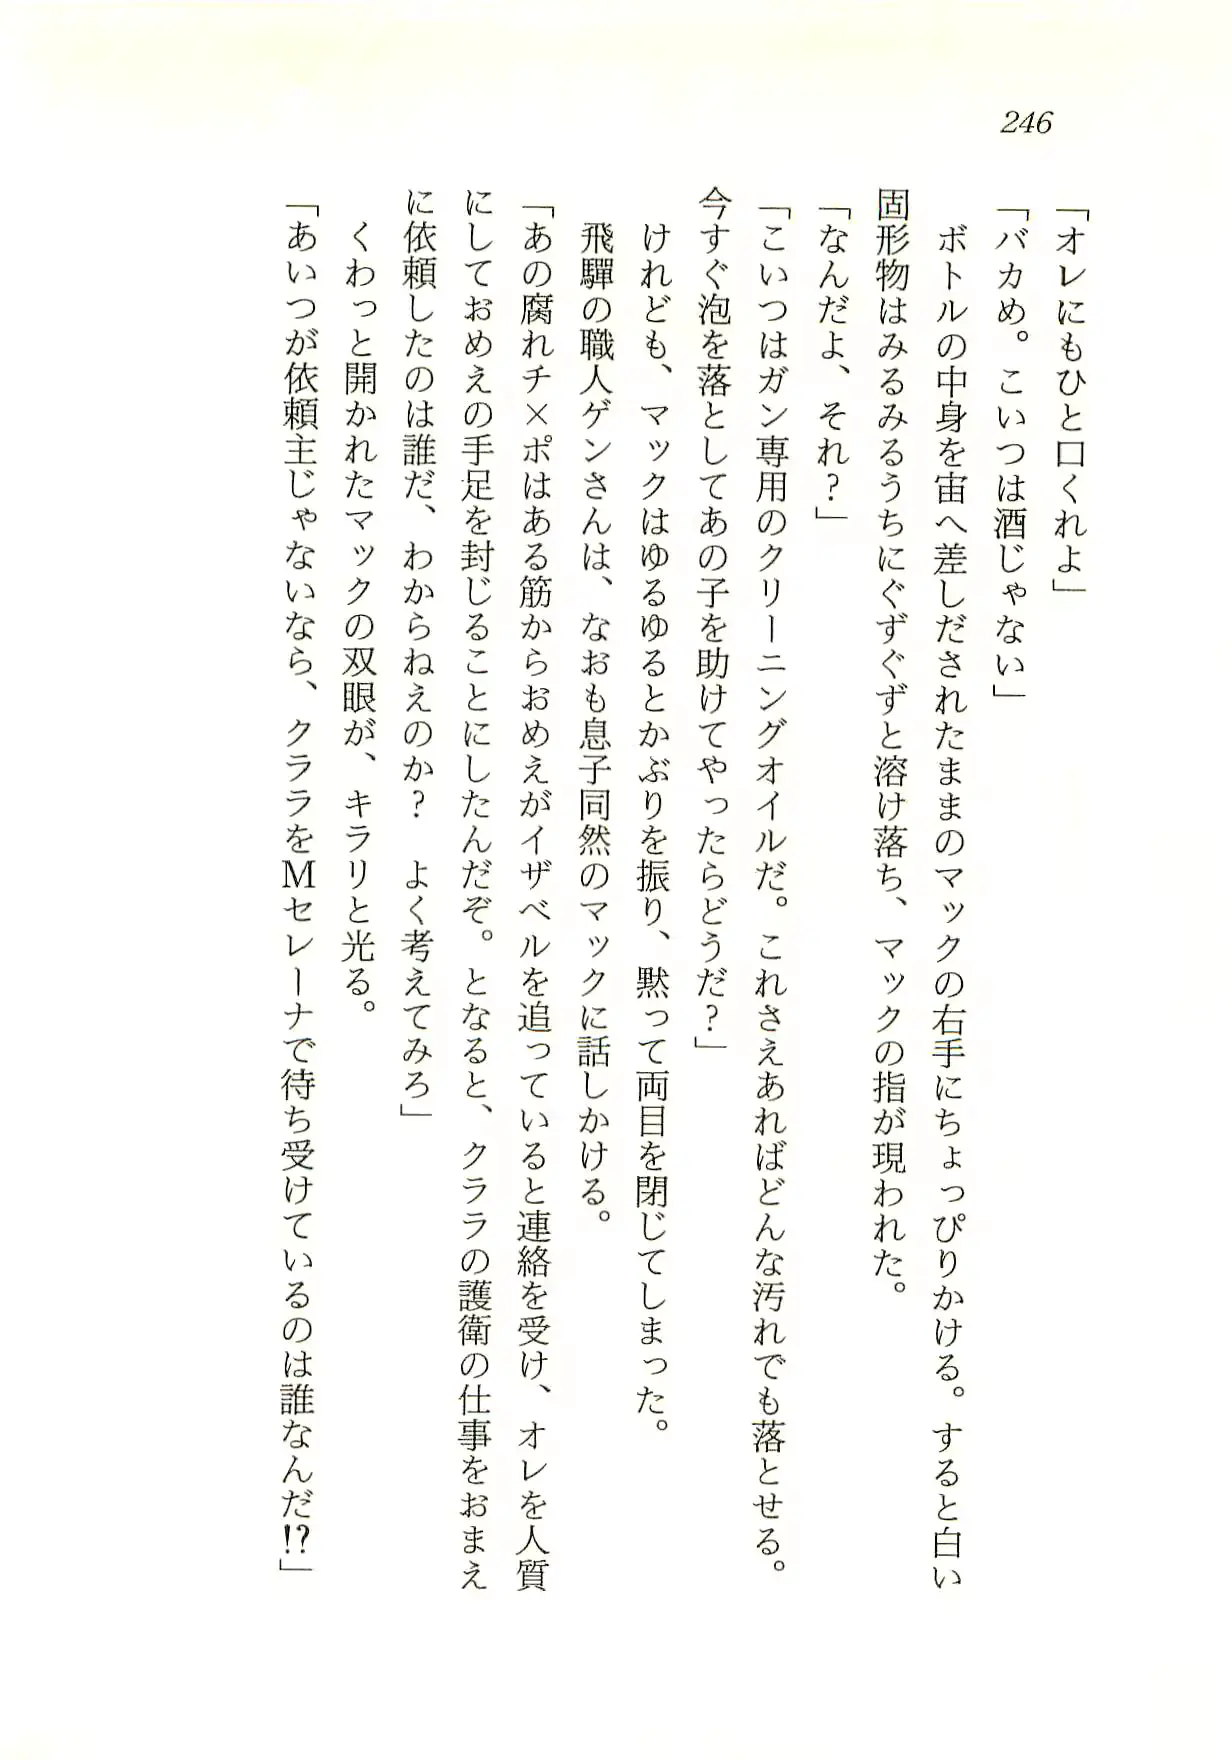 246
「オレにもひと口くれよ」
「バカめ。こいつは酒じゃない」
　ボトルの中身を宙へ差しだされたままのマックの右手にちょっぴりかける。すると白い
固形物はみるみるうちにぐずぐずと溶け落ち、マックの指が現われた。
「なんだよ、それ？」
「こいつはガン専用のクリーニングオイルだ。これさえあればどんな汚れでも落とせる。
今すぐ泡を落としてあの子を助けてやったらどうだ？」
　けれども、マックはゆるゆるとかぶりを振り、黙って両目を閉じてしまった。
　飛驒の職人ゲンさんは、なおも息子同然のマックに話しかける。
「あの腐れチ×ポはある筋からおめえがイザベルを追っていると連絡を受け、オレを人質
にしておめえの手足を封じることにしたんだぞ。となると、クララの護衛の仕事をおまえ
に依頼したのは誰だ、わからねえのか？　よく考えてみろ」
　くわっと開かれたマックの双眼が、キラリと光る。
「あいつが依頼主じゃないなら、クララをＭセレーナで待ち受けているのは誰なんだ!?」